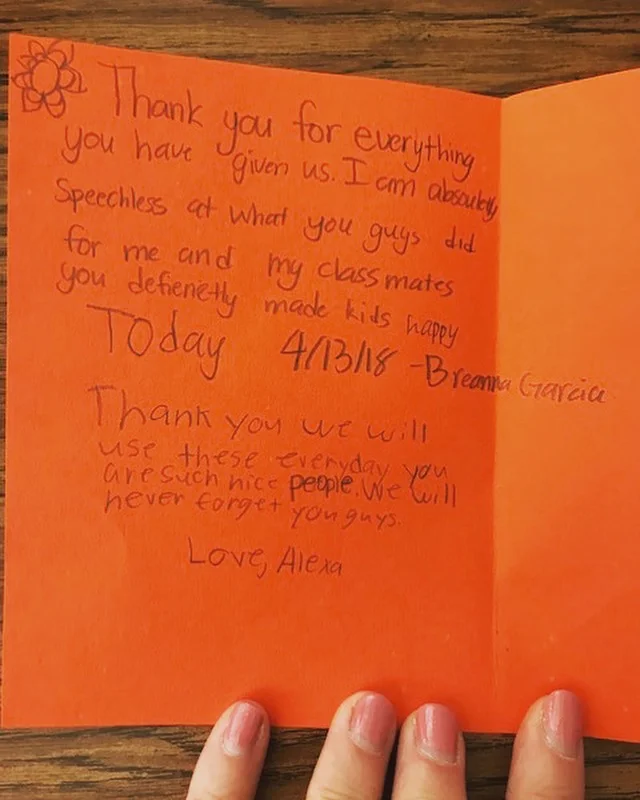 Thank you for everything
you have given us. I am absoulutly
Speechless at what you guys did
for me and my classmates
you defienetly made kids happy
TOday 4/13/18 -Breanna Garcia
Thank you we will
use these everyday you
are such nice people. We will
never forget you guys.
Love, Alexa